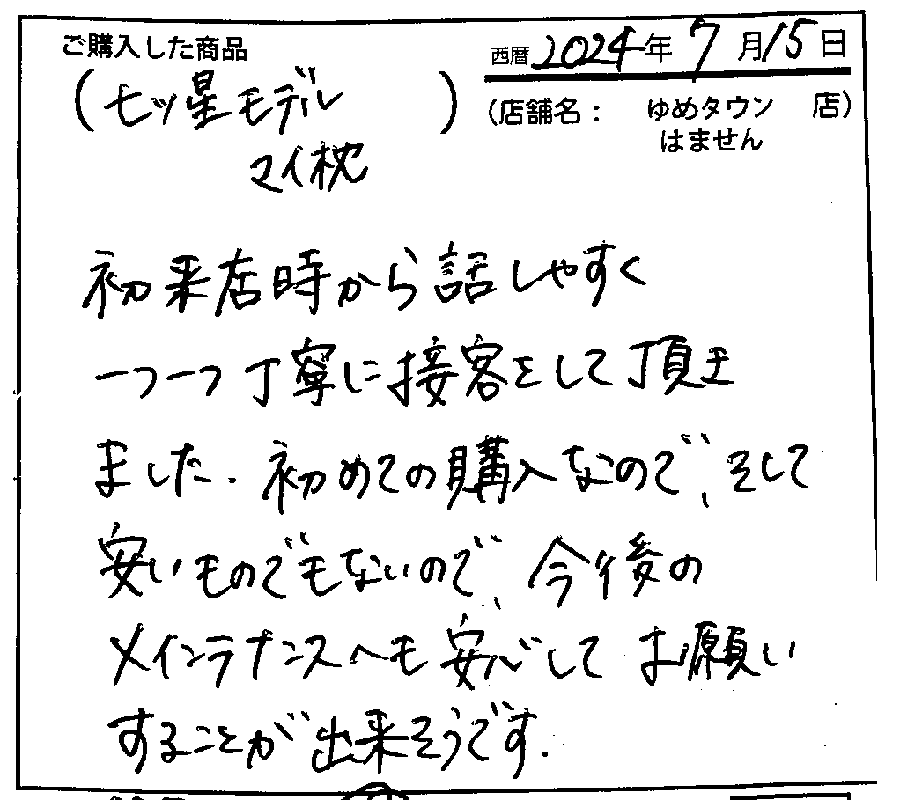 ご購入した商品
西暦 2024年 7月15日
(七ッ星モデル)
(店舗名： ゆめタウン 店)
はません
マイ枕
初来店時から話しやすく
一つ一つ丁寧に接客をして頂き
ました. 初めての購入なので、そして
安いものでもないので、今後の
メインテナンスへも安心してお願い
することが出来そうです.